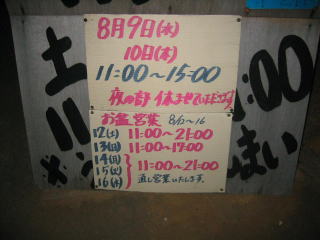 8月9日(水)
10日(木)
11:00〜15:00
夜の部 休ませていただきます
お盆営業 8/12〜16
12(土) 11:00〜21:00
13(日) 11:00〜17:00
14(月)
15(火) 11:00〜21:00
16(水) 通し営業いたします。
土
:00
まい